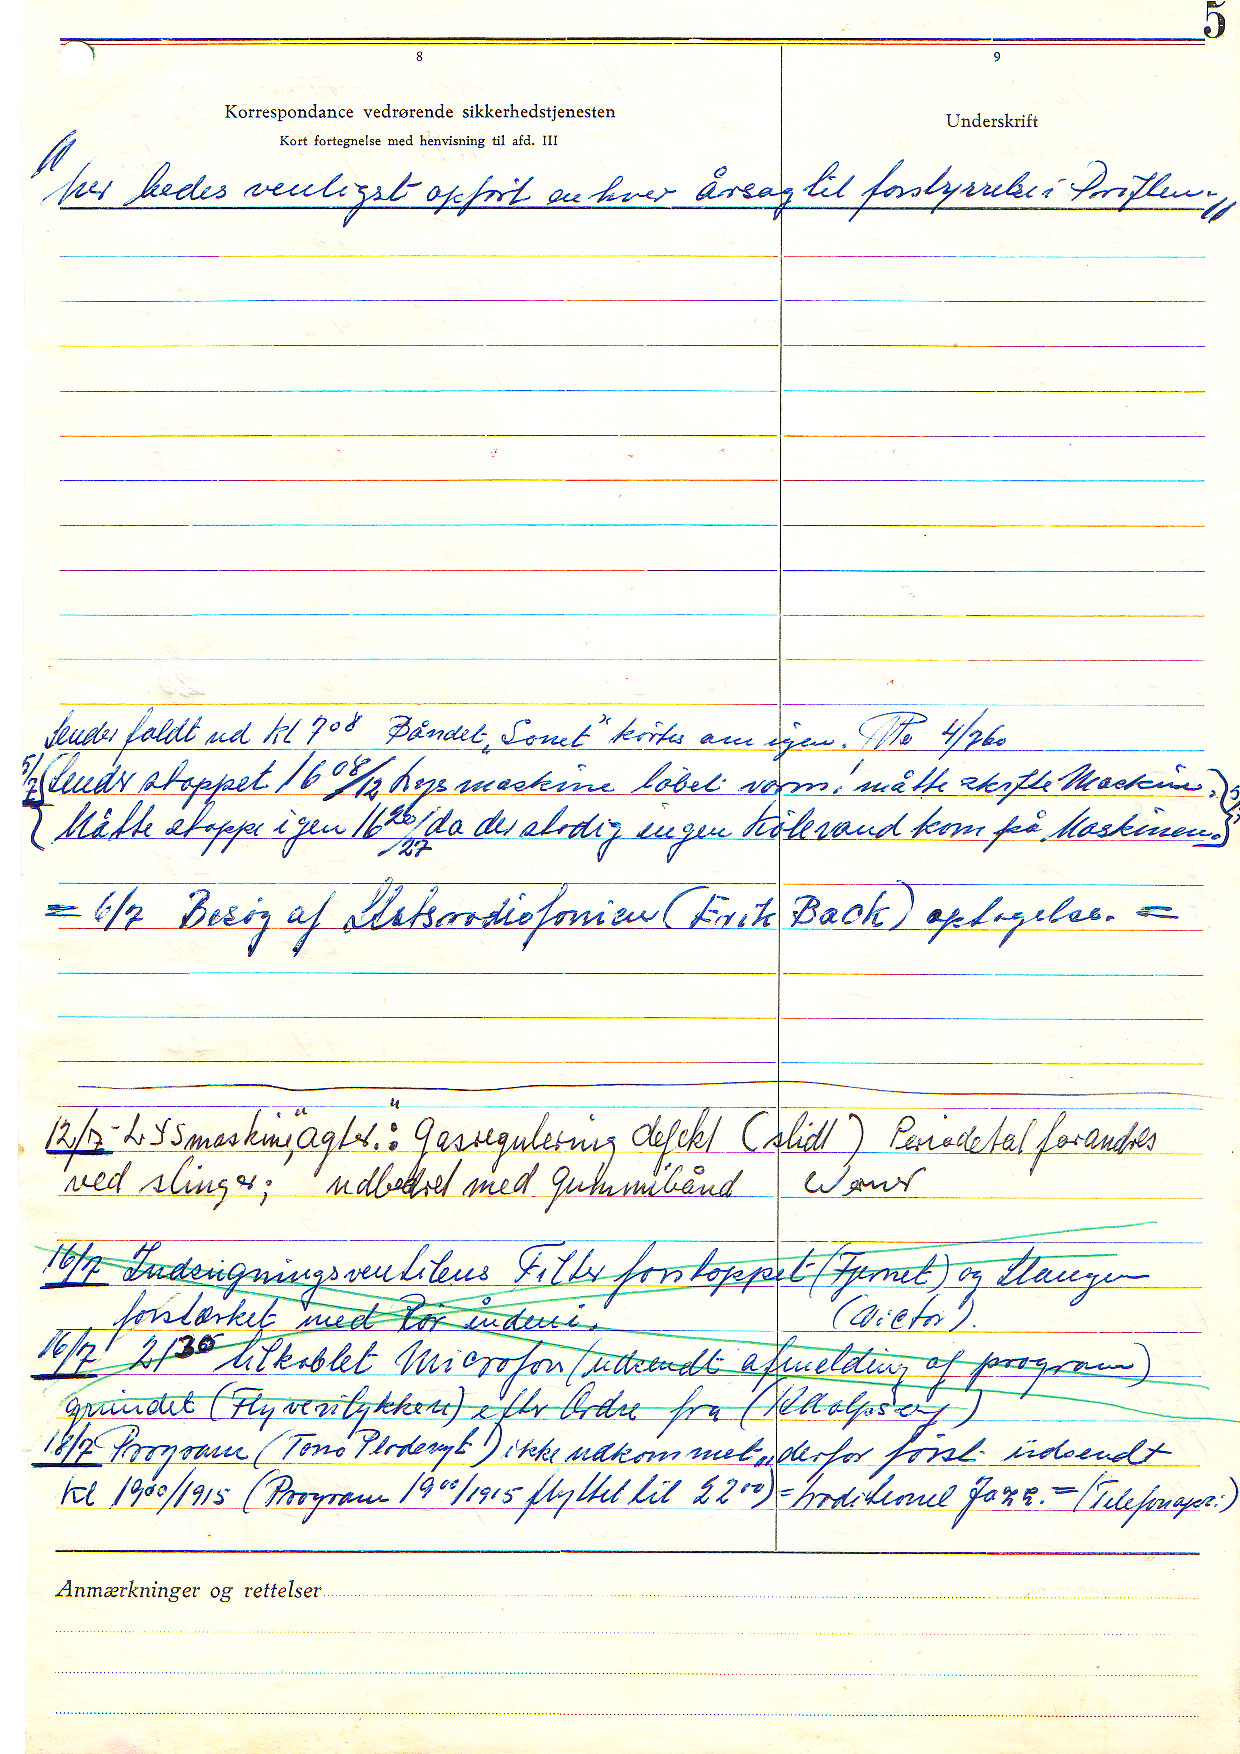 5
8
9
Korrespondance vedrørende sikkerhedstjenesten
Underskrift
Kort fortegnelse med henvisning til afd. III
"her bedes venligst opført en hver årsag til forstyrrelse i Driften."
Sender faldt ud kl 7 08 Båndet „Sonet" körtes om igen. 4/7 60
5/7 (Sender stoppet 16 08/12 Lysmaskine løbet varm! måtte skifte Maskine.) 5/7
Måtte stoppe igen 16 20/27 da der stadig ingen Kølevand kom på Maskinen.
= 6/7 Besøg af Statsradiofonien (Erik Back) optagelse. =
12/7 - Lysmaskine „Agter": Gasregulering defekt (slidt) Periodetal forandres
ved slinger; udbedret med gummibånd
16/7 Indsugningsventilens Filter forstoppet (Fjernet) og Slangen
forstærket med Rör indeni. (Victor).
16/7 21 30 tilkoblet Microfon (udsendt afmelding af program)
grundet (Flyverulykken) efter Ordre fra
18/7 Program (Tono ) ikke udkommet, derfor først udsendt
kl 19 00/1915 (Program 19 00/1915 flyttet til 22 00) = traditionel Jazz. =
Anmærkninger og rettelser